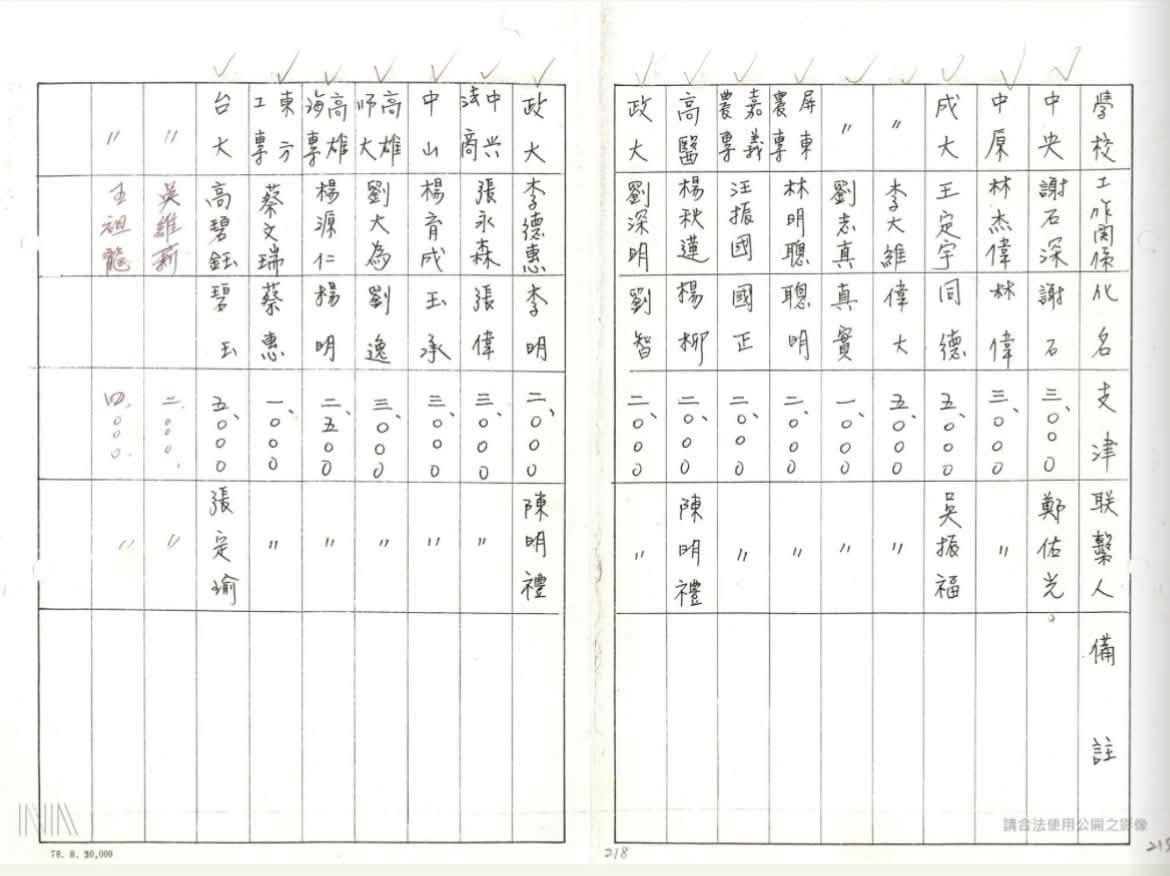 學校 工作関係 化名 支津 联繫人 備註
中央 謝石深 謝石 三、000 鄭佑光
中原 林杰偉 林偉 三、000 〃
成大 王定宇 同德 五、000 吳振福
〃 李大維 偉大 五、000 〃
〃 劉志真 真實 一、000 〃
屏東農專 林明聰 聰明 二、000 〃
嘉義農專 汪振國 國正 二、000 〃
高醫 楊秋蓮 楊柳 二、000 陳明禮
政大 劉深明 劉智 二、000 〃
政大 李德惠 李明 二、000 陳明禮
中兴法商 張永森 張偉 三、000 〃
中山 楊育成 玉承 三、000 〃
高雄師大 劉大為 劉逸 三、000 〃
高雄海專 楊源仁 楊明 二、五00 〃
東方工專 蔡文瑞 蔡惠 一、000 〃
台大 高碧鈺 碧玉 五、000 張定瑜
〃 吳維新 二、000、 〃
〃 王祖龍 四、000、 〃
請合法使用公開之影像
78. 8. 30,000
218